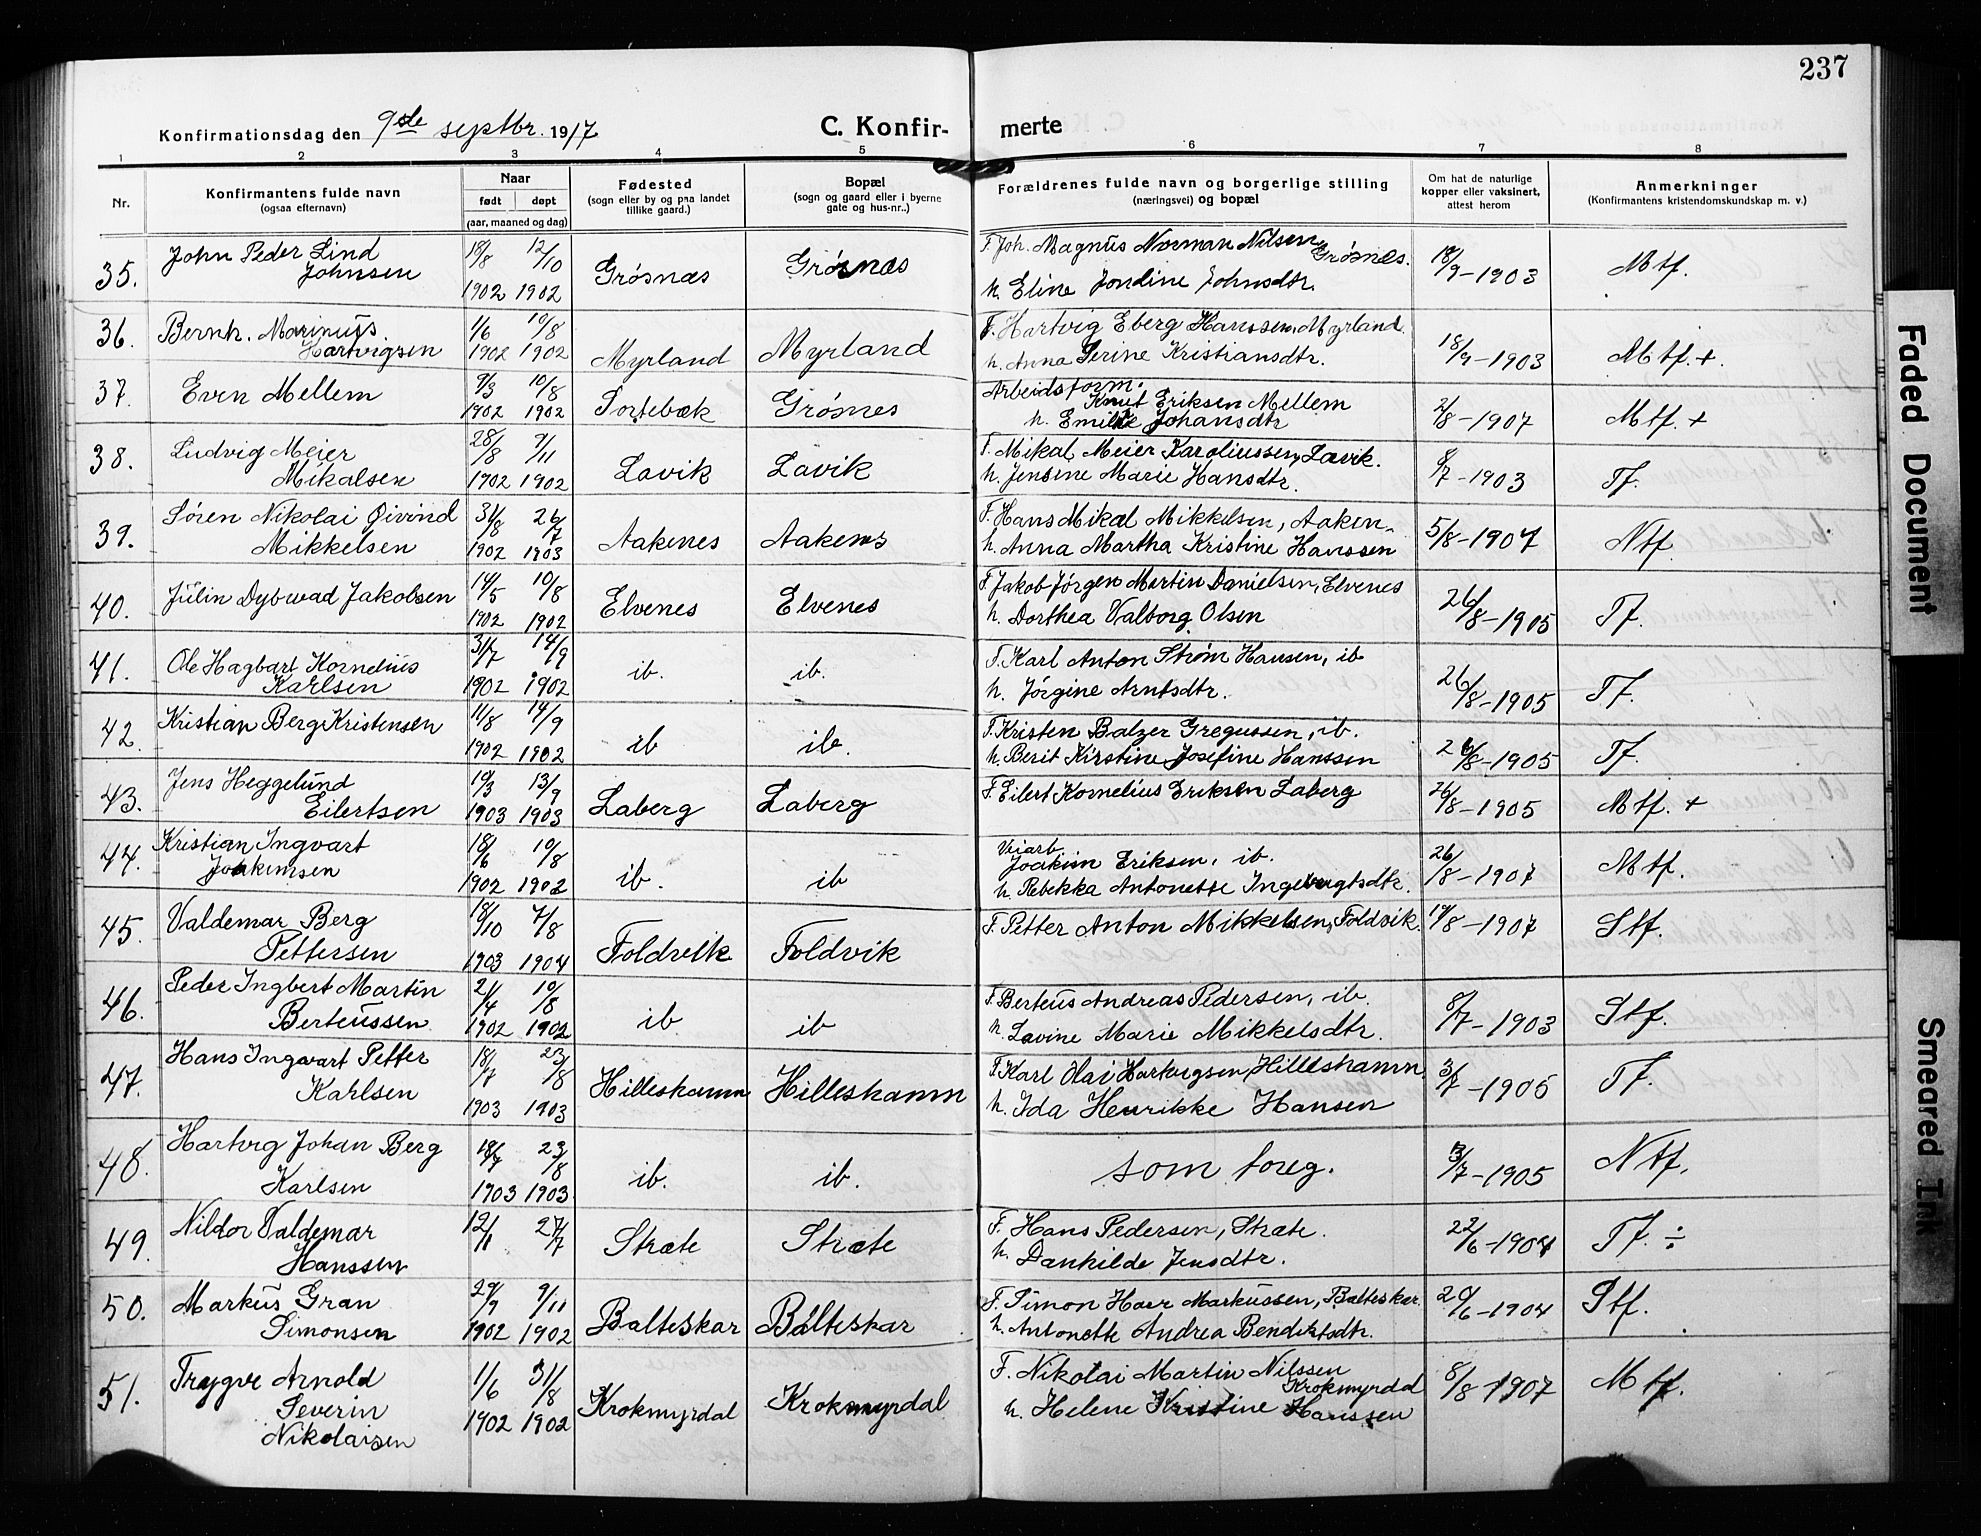 237
Konfirmationsdag den 9de septbr. 1917
C. Konfir- merte
1 2 3 4 5 6 7 8
Nr.
Konfirmantens fulde navn
(ogsaa efternavn)
Naar
født døpt
(aar, maaned og dag)
Fødested
(sogn eller by og paa landet
tillike gaard.)
Bopæl
(sogn og gaard eller i byerne
gate og hus-nr..)
Forældrenes fulde navn og borgerlige stilling
(næringsvei) og bopæl
Om hat de naturlige
kopper eller vaksinert,
attest herom
Anmerkninger
(Konfirmantens kristendomskundskap m. v.)
35. John Peder Lind
Johnsen
18/8 12/10
1902 1902
Grøsnæs
Grøsnæs
F. Joh. Magnus Norman Nilsen
Grøsnes.
h. Eline Jondine Johnsdtr.
18/9-1903
Mtf.
36. Bernh. Marinus
Hartvigsen
1/6 10/8
1902 1902
Myrland
Myrland
F. Hartvig Eberg Hanssen, Myrland
h. Anna Serine Kristiansdtr.
18/9-1903
Mtf. +
37. Even Mellem
9/3 10/8
1902 1902
Sortebæk
Grøsnes
Arbeidsform.
Knut Eriksen Mellem
h. Emilie Johansdtr
2/8-1907
Mtf. +
38. Ludvig Meier
Mikalsen
28/8 9/11
1902 1902
Lavik
Lavik
F. Mikal Meier Karoliussen, Lavik.
h. Jensine Marie Hansdtr.
8/7-1903
Tf.
39. Søren Nikolai Øivind
Mikkelsen
31/8 26/7
1902 1903
Aakenes
Aakenes
F. Hans Mikal Mikkelsen, Aaken.
h. Anna Martha Kristine Hanssen
5/8-1907
Ntf.
40. Julin Dybwad Jakobsen
14/5 10/8
1902 1902
Elvenes
Elvenes
F. Jakob Jørgen Martin Danielsen, Elvenes
h. Dorthea Valborg Olsen
26/8-1905
Tf.
41. Ole Hagbart Kornelius
Karlsen
31/7 14/9
1902 1902
ib.
ib.
F. Karl Anton Strøm Hansen, ib
h. Jørgine Arntsdtr.
26/8-1905
Tf.
42. Kristian Berg Kristensen
11/8 14/9
1902 1902
ib
ib.
F. Kristen Balzer Gregussen, ib.
h. Berit Kirstine Josefine Hanssen
26/8-1905
Tf.
43. Jens Heggelund
Eilertsen
19/3 13/9
1903 1903
Laberg
Laberg
F. Eilert Kornelius Eriksen Laberg
26/8-1905
Mtf. +
44. Kristian Ingvart
Joakimsen
18/6 10/8
1902 1902
ib.
ib
Veiarb
Joakim Eriksen, ib.
h. Rebekka Antonette Ingebrigtsdtr.
26/8-1907
Mtf.
45. Valdemar Berg
Pettersen
18/10 7/8
1903 1904
Foldvik
Foldvik
F. Petter Anton Mikkelsen, Foldvik.
19/8-1907
Stf.
46. Peder Ingbert Martin
Berteussen
21/4 10/8
1902 1902
ib
ib
F. Berteus Andreas Pedersen, ib.
h. Lovine Marie Mikkelsdtr.
8/7-1903
Stf.
47. Hans Ingvart Petter
Karlsen
18/7 23/8
1903 1903
Hilleshamn
Hilleshamn
F. Karl Olai Hartvigsen, Hilleshamn
h. Ida Henrikke Hansen
3/7-1905
Tf.
48. Hartvig Johan Berg
Karlsen
18/7 23/8
1903 1903
ib.
ib.
som foreg.
3/7-1905
Ntf.
49. Nildor Valdemar
Hanssen
12/11 27/7
Stræte
Stræte
F. Hans Pedersen, Stræte.
h. Dankilde Jensdtr.
22/6-1904
Tf. ÷
50. Markus Gran
Simonsen
29/9 9/11
1902 1902
Balteskar
Balteskar
F. Simon Haar Markussen, Balteskar.
h. Antonette Andrea Bendiktsdtr.
20/6-1904
Stf.
51. Trygve Arnold
Severin
Nikolaisen
1/6 31/8
1902 1902
Krokmyrdal
Krokmyrdal
F. Nikolai Martin Nilssen
Krokmyrdal
h. Helene Kristine Hanssen
8/8 1907
Mtf.
Faded Document
Smeared Ink